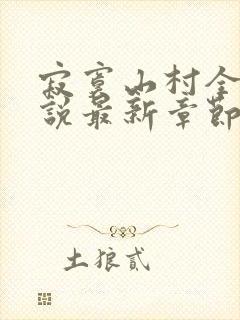 寂寞山村全
說最新章節
土狼貳